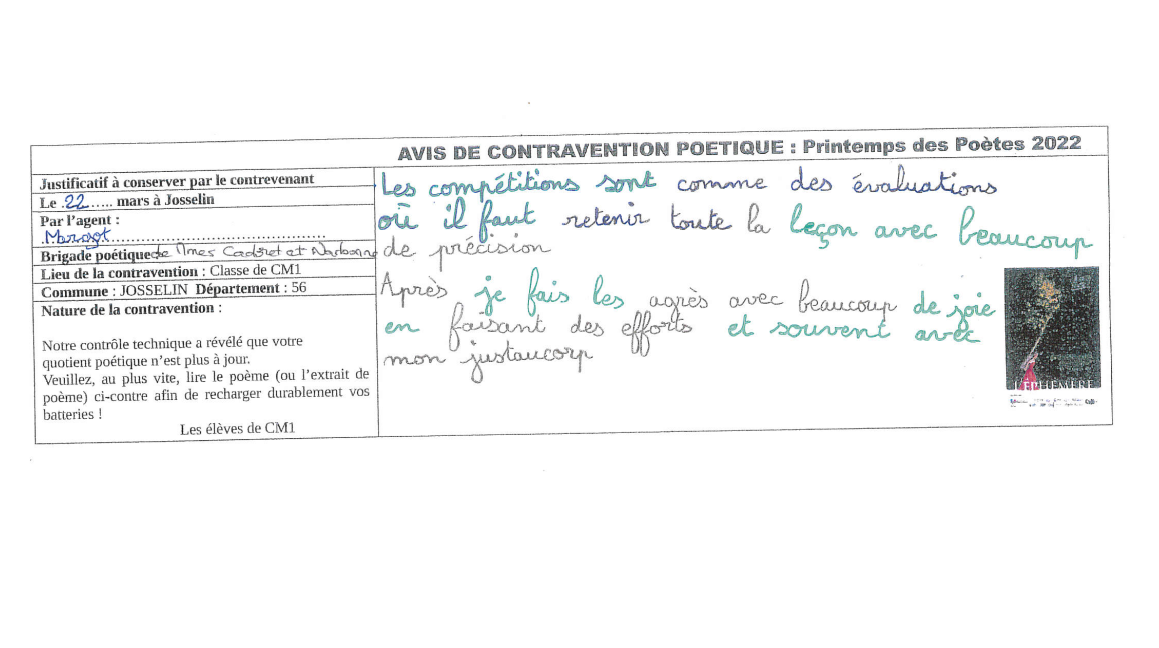 AVIS DE CONTRAVENTION POETIQUE : Printemps des Poètes 2022
Justificatif à conserver par le contrevenant
Le .22..... mars à Josselin
Par l'agent :
Margot
Brigade poétique de Mmes Cadoret et Narbonne
Lieu de la contravention : Classe de CM1
Commune : JOSSELIN Département : 56
Nature de la contravention :
Notre contrôle technique a révélé que votre
quotient poétique n'est plus à jour.
Veuillez, au plus vite, lire le poème (ou l'extrait de
poème) ci-contre afin de recharger durablement vos
batteries !
Les élèves de CM1
Les compétitions sont comme des évaluations
où il faut retenir toute la leçon avec beaucoup
de précision
Après je fais les agrès avec beaucoup de joie
en faisant des efforts et souvent avec
mon justaucorp
L'ÉPHÉMÈRE